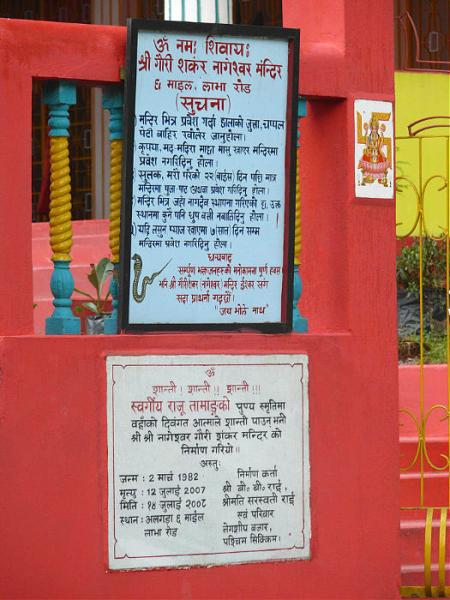 ॐ नमः शिवायः
श्री गौरी शंकर नागेश्वर मन्दिर
६ माइल, लाभा रोड
(सुचना)
मन्दिर भित्र प्रवेश गर्दा छालाको जुत्ता, चप्पल
पेटी बाहिर खोलेर जानुहोला।
कृपया, मद-मदिरा माछा मासु खाएर मन्दिरमा
प्रवेश नगरिदिनु होला।
सुतक, मरी परेको २२ (बाईस) दिन पछि मात्र
मन्दिरमा पुजा पाठ अथवा प्रवेश गरिदिनु होला।
मन्दिर भित्र जहाँ नागदेव स्थापना गरिएको छ, उक्त
स्थानमा कुनै पनि धुप बत्ती नबालिदिनु होला।
यदि लसुन प्याज खाएमा ७ (सात) दिन सम्म
मन्दिरमा प्रवेश नगरिदिनु होला।
धन्यवाद
सम्पूर्ण भक्तजनहरुको मनोकामना पुर्ण होस
भनि श्री गौरीशंकर (नागेश्वर) मन्दिर ईश्वर संग
सदा प्रार्थना गर्दछौं।
"जय भोले नाथ"
ॐ
शान्ती ! शान्ती !! शान्ती !!!
स्वर्गीय राजू तामाङको पूण्य स्मृतिमा
वहाँको दिवंगत आत्माले शान्ती पाउन् भनी
श्री श्री नागेश्वर गौरी शंकर मन्दिर को
निर्माण गरियो॥
अस्तुः
जन्म : 2 मार्च 1982
मृत्यु : 12 जुलाई 2007
मिति : १४ जुलाई २००८
स्थान : अलगढा ६ माईल
लाभा रोड
निर्माण कर्ता
श्री बी. बी. राई,
श्रीमति सरस्वती राई
एवं परिवार
गेगशीप बजार,
पश्चिम सिक्किम।